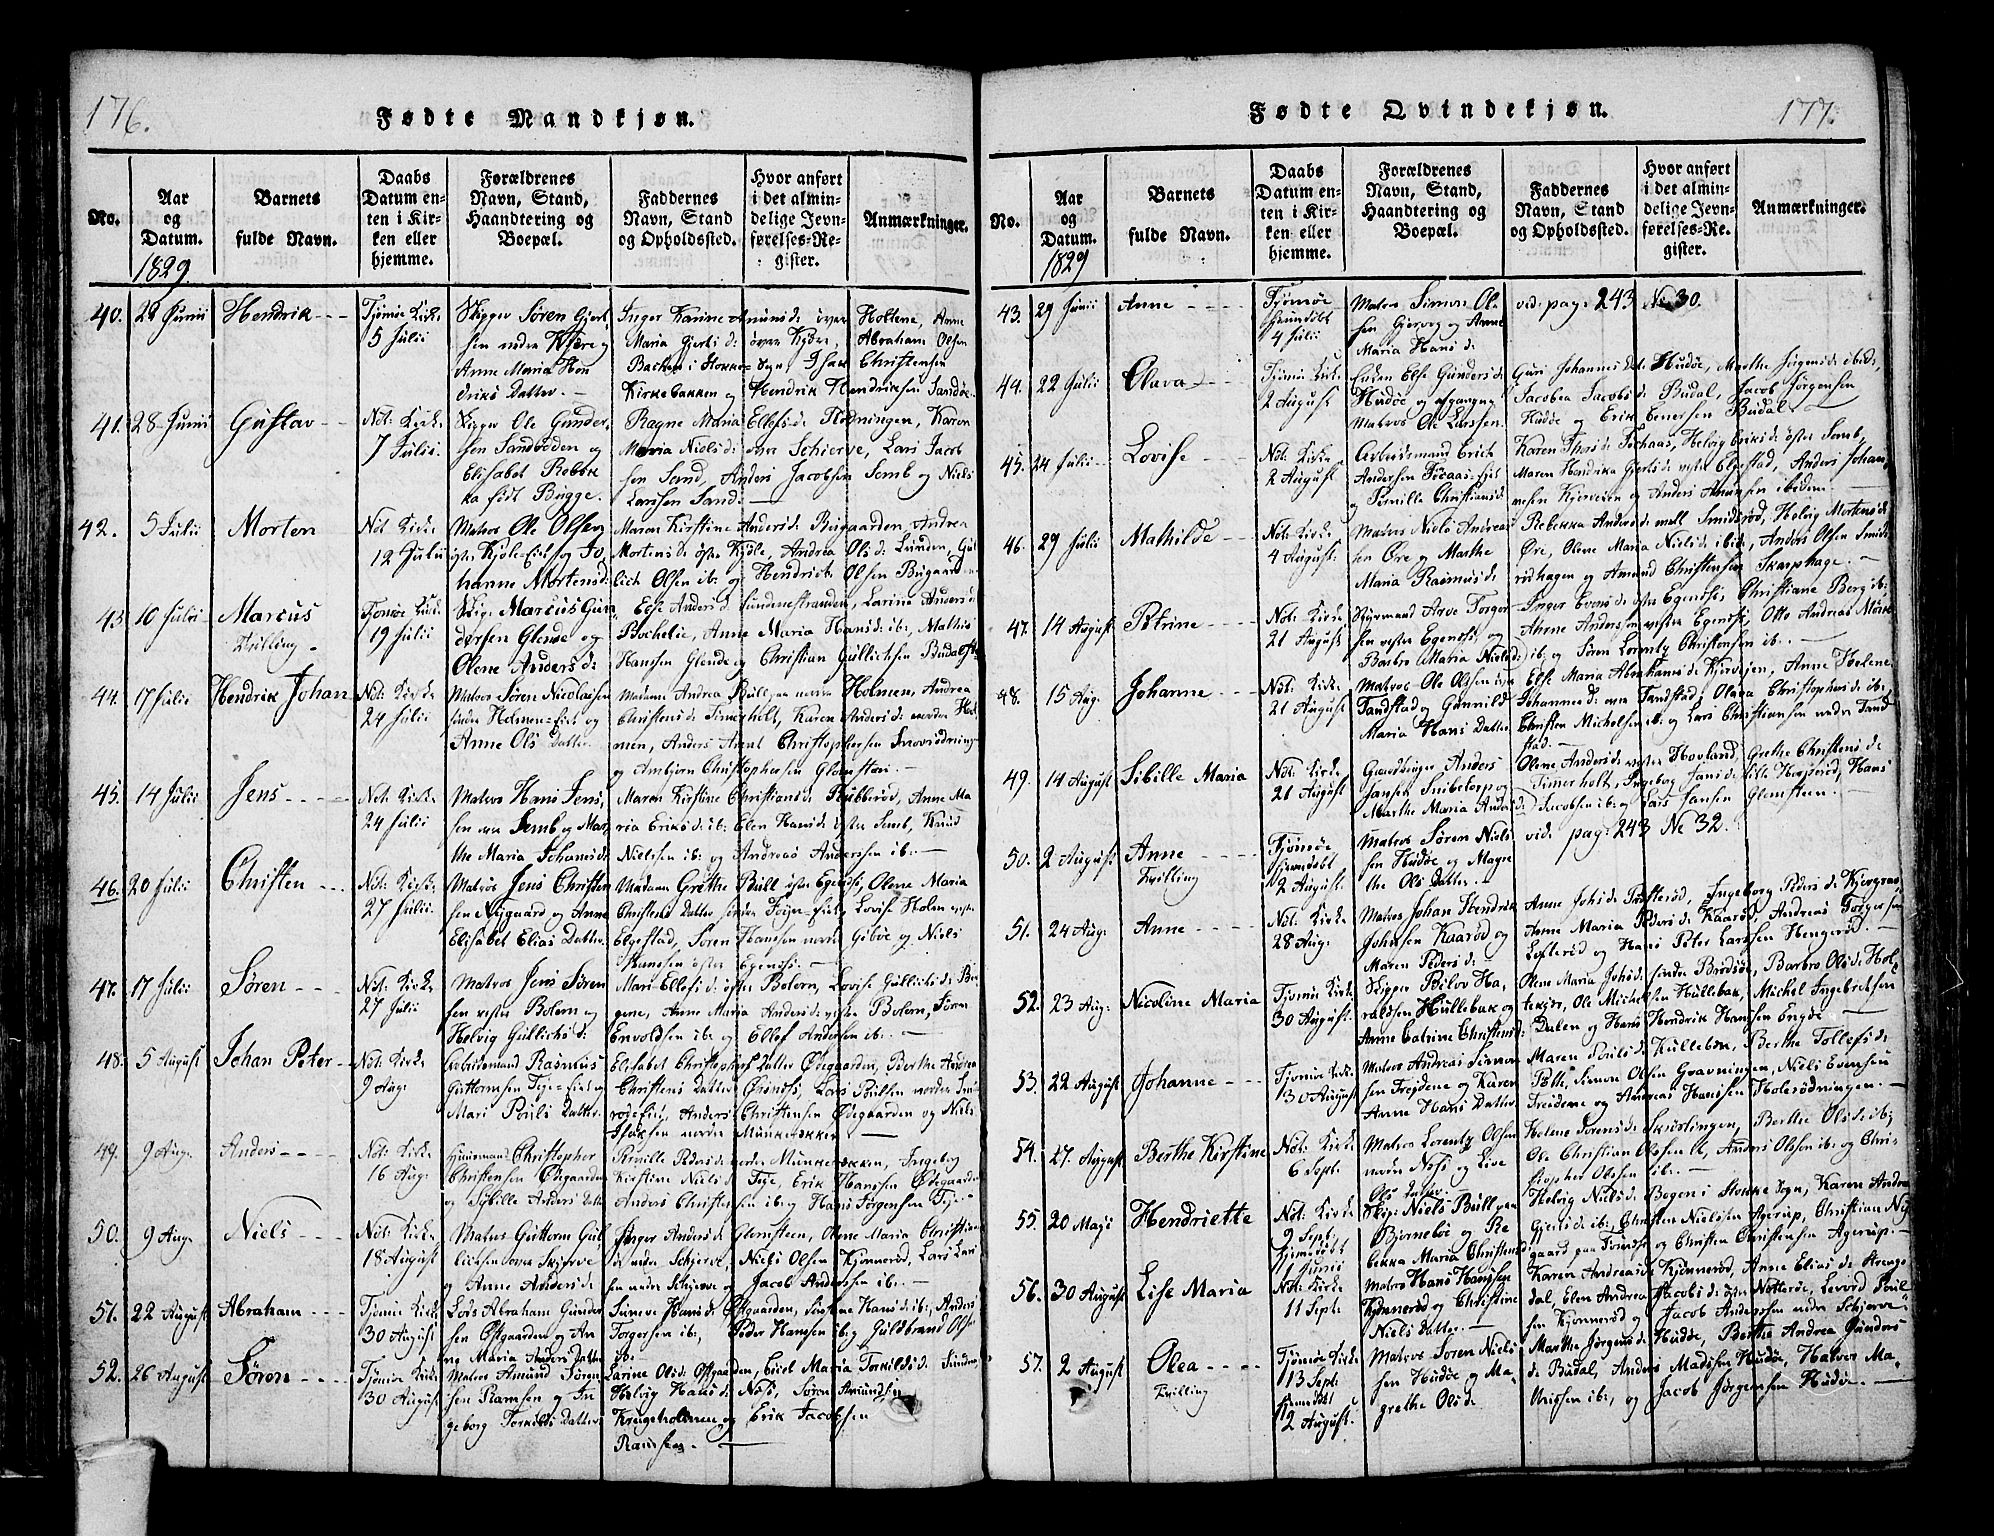 176.
Fødte Mandkjøn.
No.
Aar
og
Datum.
1829.
Barnets
fulde Navn.
Daabs
Datum en-
ten i Kir-
ken eller
hjemme.
Forældrenes
Navn, Stand,
Haandtering og
Boepæl.
Faddernes
Navn, Stand
og Opholdssted.
Hvor anført
i det almin-
delige Jevn-
førelses-Re-
gister.
Anmærkninger.
40.
Hendrik
Tjømøe Kirke
5 Julii
Skipper Søren Gjert-
sen nedre Kjøre og
Anne Maria Hen
driks Datter.
Kirkebakken og Hendrik Hendriksen Sandøe.
41. 28 Junii
Gustav
Not: Kirke
7 Julii
Skipper Ole Gunder-
sen Sandbodden
Elisabet Rebek
ka født Bugge.
Ragne Maria Ellefsd: Flekningen, Karen
Maria Nielsd: over Schierve, Lars Jacob
sen Sand, Anders Jacobsen Semb og Niels
Larssen Sand.
42. 5 Julii
Morten
Not: Kirke
12 Julii
Matros Ole Olsen
østre Kjøle-Eiet og Jo
hanne Mortensd:
Maren Kirstine Andersd: Bugaarden, Andrea
Mortensd: østre Kjøle, Andrea Olsd: Lunden, Gul
lich Olsen ib: og Hendrich Olsen Bugaarden
43. 10 Julii
Marcus
Tvilling
Tjømøe Kirke
19 Julii
Skip: Marcus Gun
dersen Glende og
Olene Andersd:
Else Andersd: Sundenestranden, Larine Andersd:
Bochelie, Anne Maria Hansd: ib:, Mathis
Hanssen Glende og Christian Gullichsen Budal
44. 17 Julii
Hendrik Johan
Not: Kirke
24 Julii
Matros Søren Nicolaisen
søndre Holmen-Eiet og
Anne Ols Datter.
Madame Andrea Bull paa nordre Holmen, Andrea
Christensd: Timerholt, Karen Andersd: nordre Hol
men, Anders Arent Christophersen Snoverødning
og Ambjørn Christophersen Glomsten.
45. 14 Julii
Jens
Not: Kirke
24 Julii
Matros Hans Jens,
sen paa Semb og Mar,
the Maria Johansd:
Maren Kirstine Christiansd: Ribberød, Anne Ma
ria Eriksd: ib: Elen Hansd: østre Semb, Knud
Nielssen ib: og Andreas Anderssen ib:
46. 20 Julii
Christen
Not: Kirke
27 Julii.
Matros Jens Christen
sen Nygaard og Anne
Elisabet Elias Datter.
Madame Grethe Bull østre Egenæs, Olene Maria
Christens Datter søndre Føyn-Eiet, Lovise Holm vestre
Elgestad, Søren Hanssen nordre Gibøe og Niels
Hanssen østre Egenæs.
47. 17 Julii
Søren
Not: Kirke
27 Julii
Matros Jens Søren
sen vestre Bolærn og
Helvig Gullichsd:
Mari Ellefsd: østre Bolærn, Lovise Gullichsd: Bu
gene, Anne Maria Andersd: vestre Bolærn, Søren
Envoldsen ib: og Ellef Andersen ib:
48. 5 August
Johan Peter
Not: Kirke
9 Aug:
Arbeidsmand Rasmus
Guttormsen Teje-Eiet og
Mari Pouls Datter.
Elisabet Christophers Datter Ødegaarden, Berthe Andrea
Christens Datter Ørsnæs, Lars Poulsen nordre Smid
rødeiet, Anders Christensen Ødegaarden og Niels
Isaksen nordre Munkerekken
49. 9 Aug:
Anders
Not: Kirke
16 Aug:
Huusmand Christopher
Christensen Ødegaarden
og Sybille Anders Datter
Pernille Pedersd: nordre Munkerekken, Ingeborg
Kirstine Nielsd: Teje, Erik Hanssen Ødegaarden
Anders Christensen ib: og Hans Jørgensen Teje
50. 9 Aug:
Niels
Not: Kirke
18 August
Matros Guttorm Gul
lichsen over Skjerve
og Anne Andersd:
Inger Andersd: Glomsteen, Olene Maria Christian
sen nedre Schjerve, Niels Olsen Kjønnerød, Lars Lar
sen nedre Schjerve og Jacob Anderssen ib:
51. 22 August
Abraham
Tjømøe Kirke
30 August
Lods Abraham Gunder
sen Østgaarden og An
ne Maria Anders Datter
Sineve Hansd: Østgaarden, Sirene Hansd: ib:, Anders
Torgersen ib:, Peder Hanssen ib: og Guldbrand Olsen
ib:
52. 26 August
Søren
Tjømøe Kirke
30 August
Matros Amund Søren
sen Ramsen og In
geborg Torkilds Datter
Larine Olsd: Østgaarden, Eriel Maria Torkildsd: Sunden,
Helvig Hansd: Næs, Søren Amundsen
Krugeholmene og Erik Jacobsen
Ramsen.
177.
Fødte Qvindekjøn.
No.
Aar
og
Datum.
1829
Barnets
fulde Navn.
Daabs
Datum en-
ten i Kir-
ken eller
hjemme.
Forældrenes
Navn, Stand,
Haandtering og
Boepæl.
Faddernes
Navn, Stand
og Opholdssted.
Hvor anført
i det almin-
delige Jevn-
førelses-Re-
gister.
Anmærkninger.
43. 29 Junii
Anne
Tjømøe
hjemdøbt
4 Julii
Matros Simon Ol
sen Gjervog og Anne
Maria Hansd:
vid: pag: 243 No 30.
44. 22 Julii
Olava
Tjømøe Kirke
2 August
Enken Else Gundersd:
Hudøe og afgangne
Matros Ole Larssen.
Guri Johannesd: Hudøe, Marthe Jørgensd: ibid:,
Jacobea Jacobsd: Budal, Jacob Jørgensen
Hudøe og Erik Evensen Budal.
45. 24 Julii
Lovise
Not: Kirke
2 August
Arbeidsmand Erich
Andersen Foeaas-Eiet
og Pernille Christiansd:
Karen Thorsd: Fochaas, Helvig Eriksd: østre Semb,
Maren Hendrika Gjertsd: vestre Elgestad, Anders Johan,
nesen Kjærveren og Anders Amundsen ibidem.
46. 29 Julii
Mathilde
Not: Kirke
4 August.
Matros Niels Andreas
sen Øre og Marthe
Maria Rasmusd:
Rebekka Andersd: mell Smidsrød, Helvig Mortensd:
Øre, Olene Maria Nielsd: ibid:, Anders Olsen Smids
rødhagen og Amund Christensen Skarphage.
47. 14 August
Petrine
Not: Kirke
21 August
Styrmand Arve Torger
sen vestre Egenæs, og
Barbro Maria Nielsd:
Inger Evensd: østre Egenæs, Christiane Berg ib:
Ahrne Anderssen vestre Egenæs, Otto Andreas Mørk
ib: og Søren Lorentz Christensen ib:
48. 15 Aug.
Johanne
Not: Kirke
21 August
Matros Ole Olssen øvre
Tandstad og Gunnild
Maria Hans Datter
Else Maria Abrahamsd: Kjøvdjen, Anne Helene
Johannesd: øvre Tandstad, Olava Christophersd: ib:
Christen Michelsen ib: og Lars Christiansen nedre Tand
stad.
49. 14 August
Sibille Maria
Not: Kirke
21 August
Gaardbruger Anders
Jansen Snibetorp og
Marthe Maria Andersd:
Olene Andersd: vestre Hovland, Grethe Christensd:
Timerholt, Ingeborg Jansd: lille Hæsterød, Hans
Jacobsen ib: og Lars Jansen Glomsteen.
50. 2 August
Anne
Tvilling
Tjømøe
hjemdøbt
2 August.
Matros Søren Niels
sen Hudøe og Magre
the Ols Datter.
vid: pag: 243 No 32.
51. 24 Aug:
Anne
Not: Kirke
28 Aug:
Matros Johan Hendrik
Johnsen Kaarød og
Maren Pedersd:
Anne Johsd: Østerød, Ingeborg Pedersd: Kjærgraa,
Anne Maria Pedersd: Kaarød, Andreas Torgersen
Lofterød og Hans Peter Larssen Hengerød.
52. 23 Aug:
Nicoline Maria
Tjømøe Kirke
30 August.
Skipper Bilov Ha,
raldsen Hullebak og
Anne Catrine Christensd:
Olene Maria Johsd: søndre Brødsøe, Barbro Olsd: Hol
tekjær, Ole Michelsen Hullebak, Michel Ingebretsen
Dalen og Hans Hendrik Hanssen Engøe
53. 22 August
Johanne
Tjømøe Kirke
30 August
Matros Andreas Simon
sen Treidene og Karen
Anne Hans Datter
Maren Poulsd: Hullebak, Berthe Tollefsd:
Pøtte, Simon Olsen Gravningen, Niels Evensen
Treidene og Andreas Hanssen Holerødningen.
54. 27. August
Berthe Kirstine
Not: Kirke
6 Sept.
Matros Lorentz Olsen
nordre Næs og Live
Ols Datter
Helene Sørensd: Skjærlingen, Berthe Olsd: ib:
Ole Christian Olssen ib:, Anders Olsen ib: og Chri-
stopher Olssen ib:
55. 20 Maji
Hendriette
Not: Kirke
9 Sept.
hjemdøbt
1 Junii
Skip: Niels Bull paa
Bjørnebøe og Re
bekka Maria Christensd:
Helvig Nielsd: Bogen i Stokke Sogn, Karen Andrea
Gjertsd: ib:, Christen Nielssen Agerup, Christian Ny
gaard paa Tvindse og Christen Christensen Agerup.
56. 30 August
Lise Maria
Not: Kirke
11 Sept.
Matros Hans Hanssen
Kjønnerød og Christine
Niels Datter.
Karen Andreasd: Kjønnerød, Anne Eliasd: Strengs
dal, Elen Andrea Jacobsd: østre Nøtterøe, Levord Poul
sen Kjønnerød og Jacob Anderssen nedre Schjerve
57. 2 August
Olea
Tvilling
Tjømøe Kirke
13 Sept.
hjemdøbt
2 August.
Matros Søren Niels
sen Hudøe og Ma,
grethe Olsd:
Marthe Jørgensd: Hudøe, Berthe Andrea Gunders
d: Budal, Anders Madssen Hudøe, Halvor Ma-
thissen ib:, og Jacob Jørgensen Hudøe.